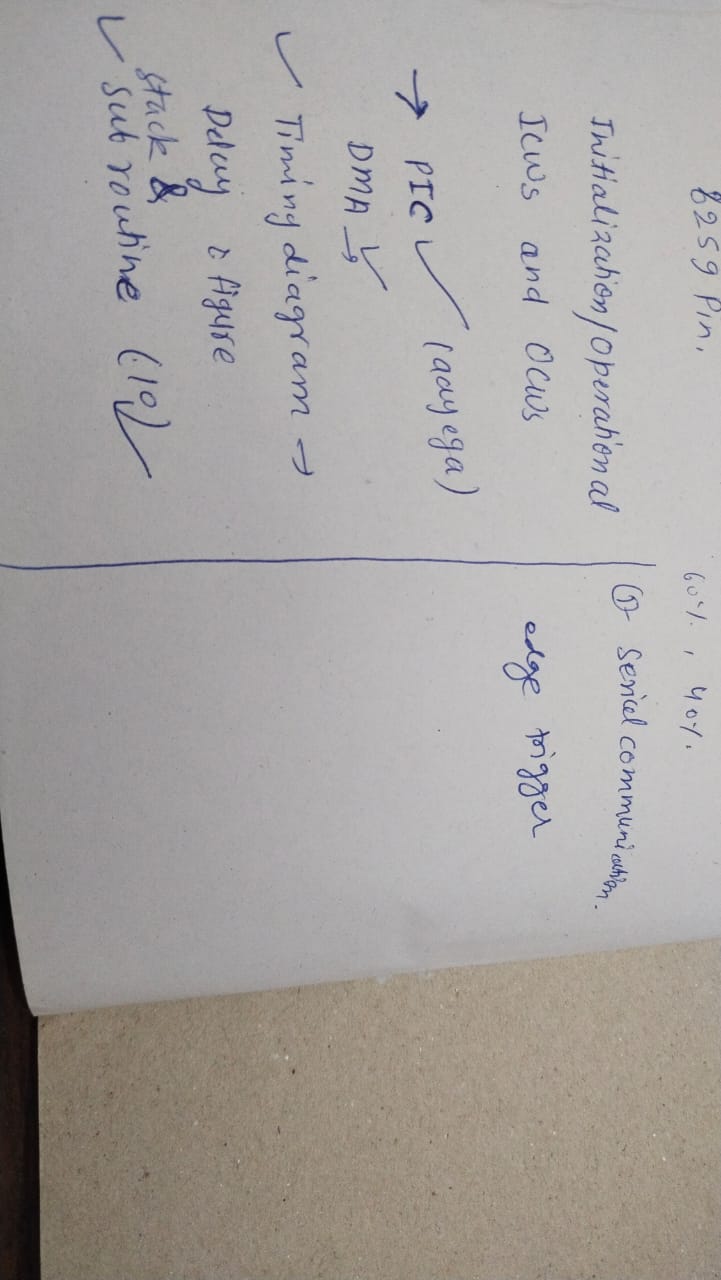 8259 Pin.
Initialization/operational
ICWs and OCWs
→ PIC ✓ (aayega)
DMA ✓→
✓ Timing diagram →
Delay & figure
stack &
✓ sub routine (10) ✓
60%, 40%.
① Serial communication.
edge trigger